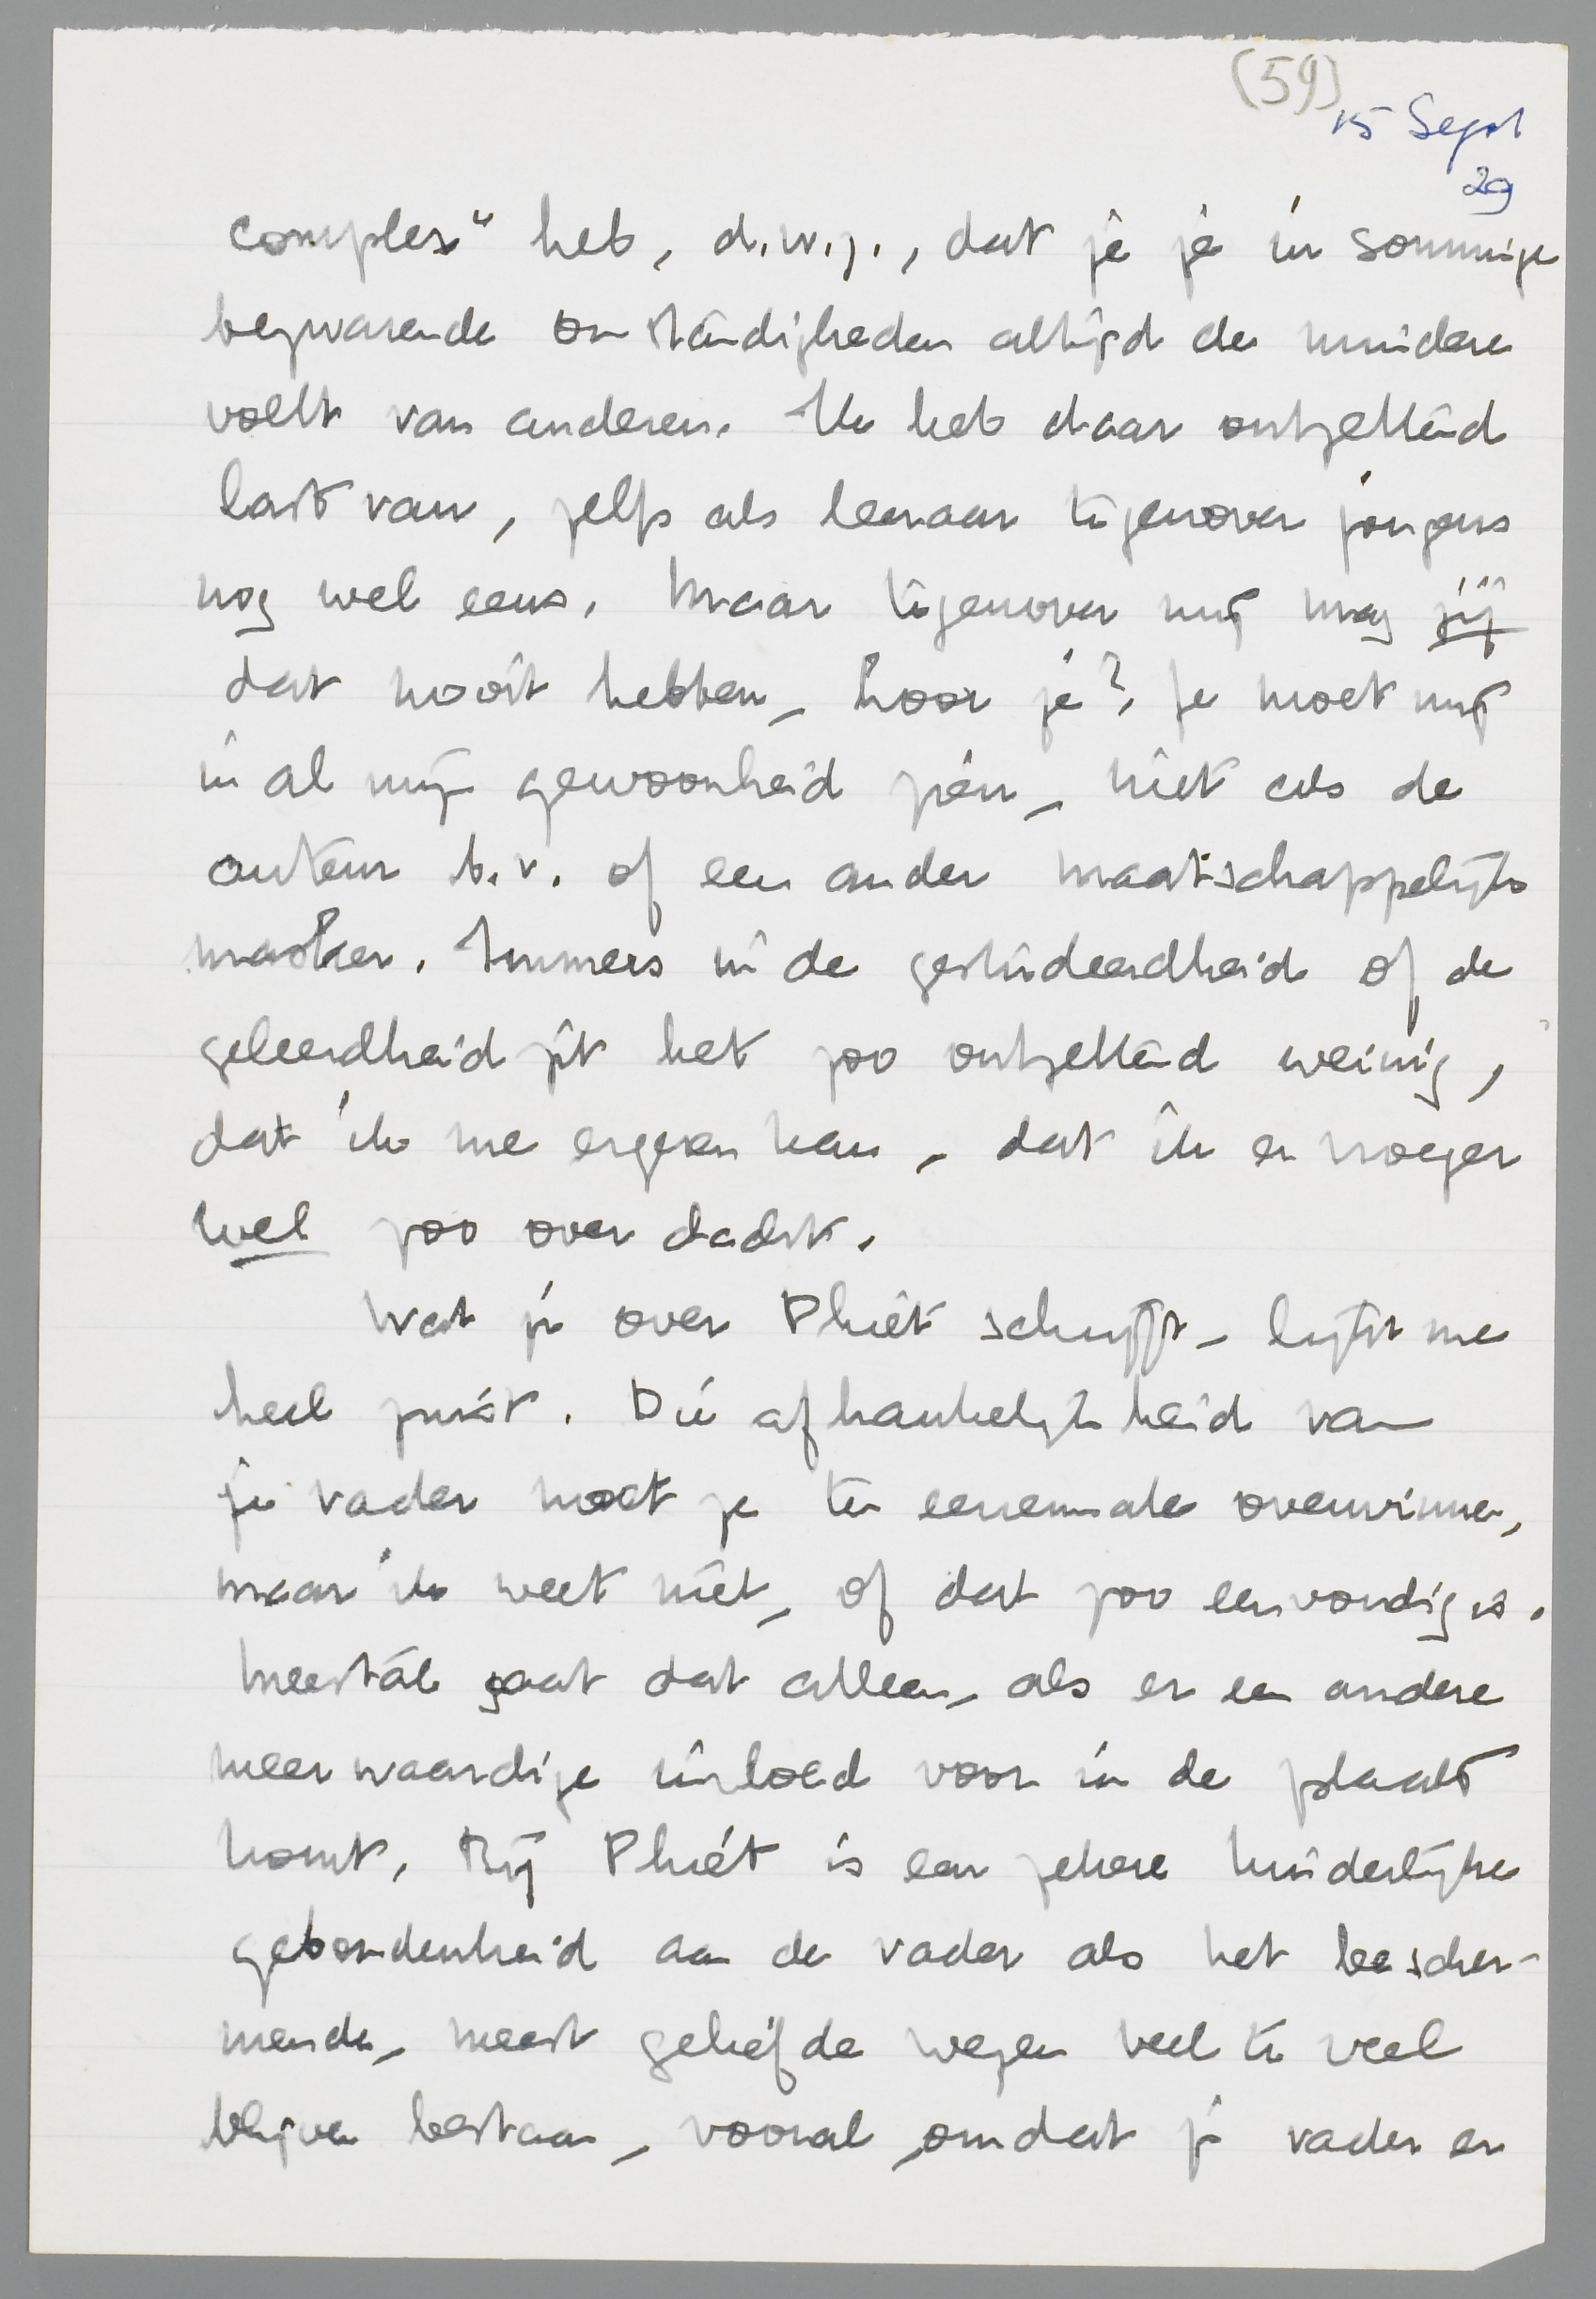 (59)
15 Sept
29
complex" heb, d.w.z., dat je je in sommige
bezwarende omstandigheden altijd de mindere
voelt van anderen. Ik heb daar ontzettend
last van, zelfs als leeraar tegenover jongens
nog wel eens. Maar tegenover mij mag jij
dat nooit hebben, hoor je? Je moet mij
in al mijn gewoonheid zien, niet als de
auteur b.v. of een ander maatschappelijk
masker. Immers in de gestudeerdheid of de
geleerdheid zit het zoo ontzettend weinig,
dat ik me ergeren kan, dat ik er vroeger
wel zoo over dacht.
Wat je over Phiet schrijft, lijkt me
heel juist. Die afhankelijkheid van
je vader moet je ten eenenmale overwinnen,
maar ik weet niet, of dat zoo eenvoudig is.
Meestal gaat dat alleen, als er een andere
meerwaardige invloed voor in de plaats
komt. Bij Phiet is een zekere kinderlijke
gebondenheid aan de vader als het bescher-
mende, meest geliefde wezen veel te veel
blijven bestaan, vooral, omdat je vader er